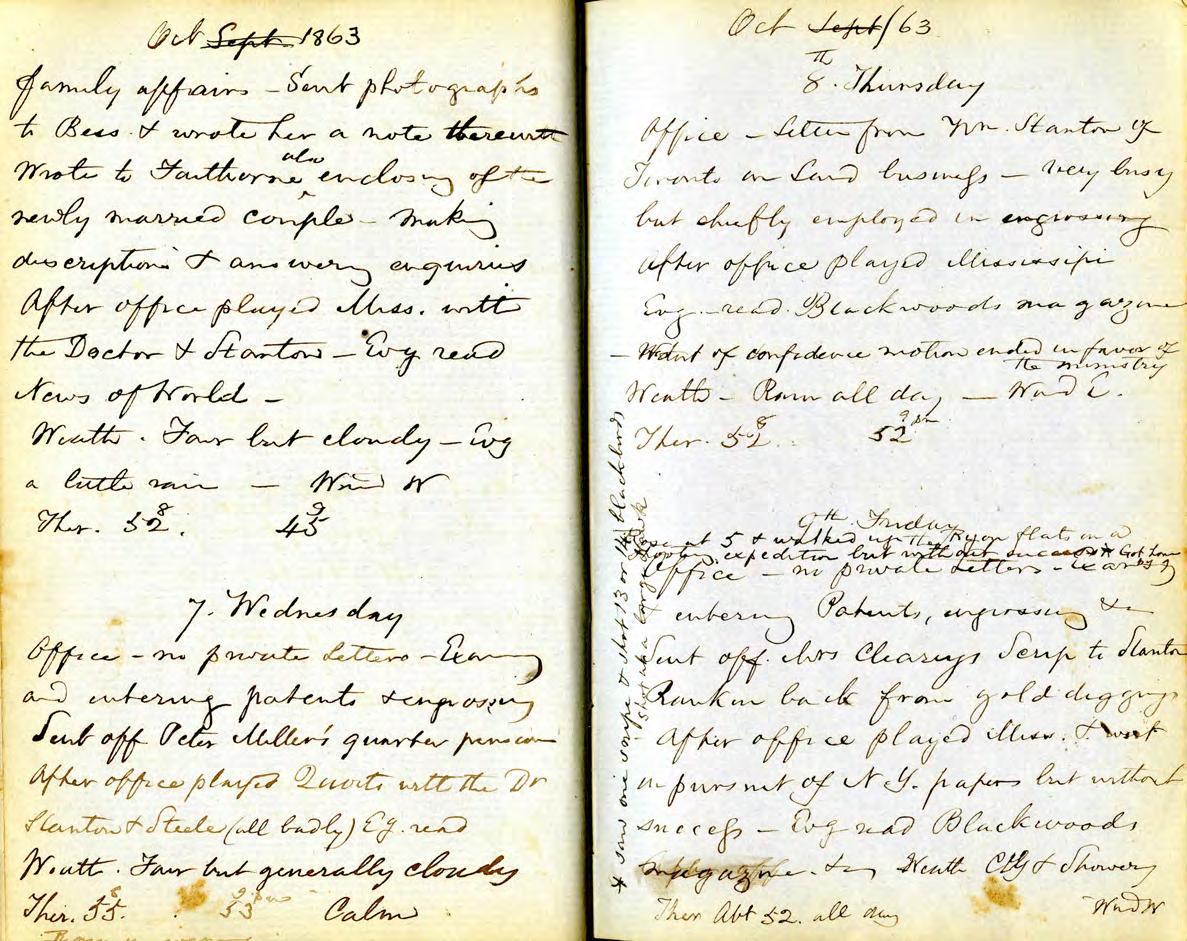 Oct Sept 1863
family affairs - Sent photographs
to Bess & wrote her a note therewith
Wrote to Faithorne also enclosing of the
newly married couple - making
descriptions & answering enquiries
After office played Miss. with
the Doctor & Stanton - Evg read
News of World -
Weath. Fair but cloudy - Evg
a little rain - Wind W
Ther. 52. 8 45 9
7. Wednesday
Office - no private letters - Examg
and entering patents & engrossing
Sent off Peter Miller's quarter pension
After office played Quoits with the Dr
Stanton & Steele (all badly) Eg. read
Weath. Fair but generally cloudy
Ther. 55. 8 53 9 pm Calm
Oct Sept/63
8th. Thursday
Office - Letter from Wm. Stanton of
Toronto on Land business - very busy
but chiefly employed in engrossing
After office played Mississipi
Evg - read Blackwoods magazine
- Want of confidence motion ended in favor of
the ministry
Weath - Rain all day - Wind E.
Ther. 52 8 52 9 pm
9th. Friday
Rose at 5 & walked up the flats on a
expedition but without success * Got home
Office - no private letters - Examg
entering Patents, engrossing &c
Sent off Mrs Clearys Scrip to Stanton
Rankin back from gold digging
After office played Miss. & went
in pursuit of N Y. papers but without
success - Evg read Blackwoods
magazine. &c Weath Cldy & Showery
Ther Abt 52. all day Wind W
* saw one snipe & shot 13 or 14 blackbirds
Shot at a large